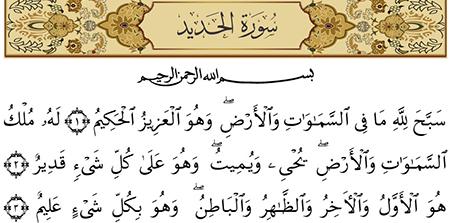 سُورَةُ الحَدِيد
بِسْمِ اللَّهِ الرَّحْمَنِ الرَّحِيمِ
سَبَّحَ لِلَّهِ مَا فِى ٱلسَّمَـٰوَٰتِ وَٱلْأَرْضِ ۖ وَهُوَ ٱلْعَزِيزُ ٱلْحَكِيمُ ﴿١﴾ لَهُۥ مُلْكُ
ٱلسَّمَـٰوَٰتِ وَٱلْأَرْضِ ۖ يُحْىِۦ وَيُمِيتُ ۖ وَهُوَ عَلَىٰ كُلِّ شَىْءٍ قَدِيرٌ ﴿٢﴾
هُوَ ٱلْأَوَّلُ وَٱلْـَٔاخِرُ وَٱلظَّـٰهِرُ وَٱلْبَاطِنُ ۖ وَهُوَ بِكُلِّ شَىْءٍ عَلِيمٌ ﴿٣﴾